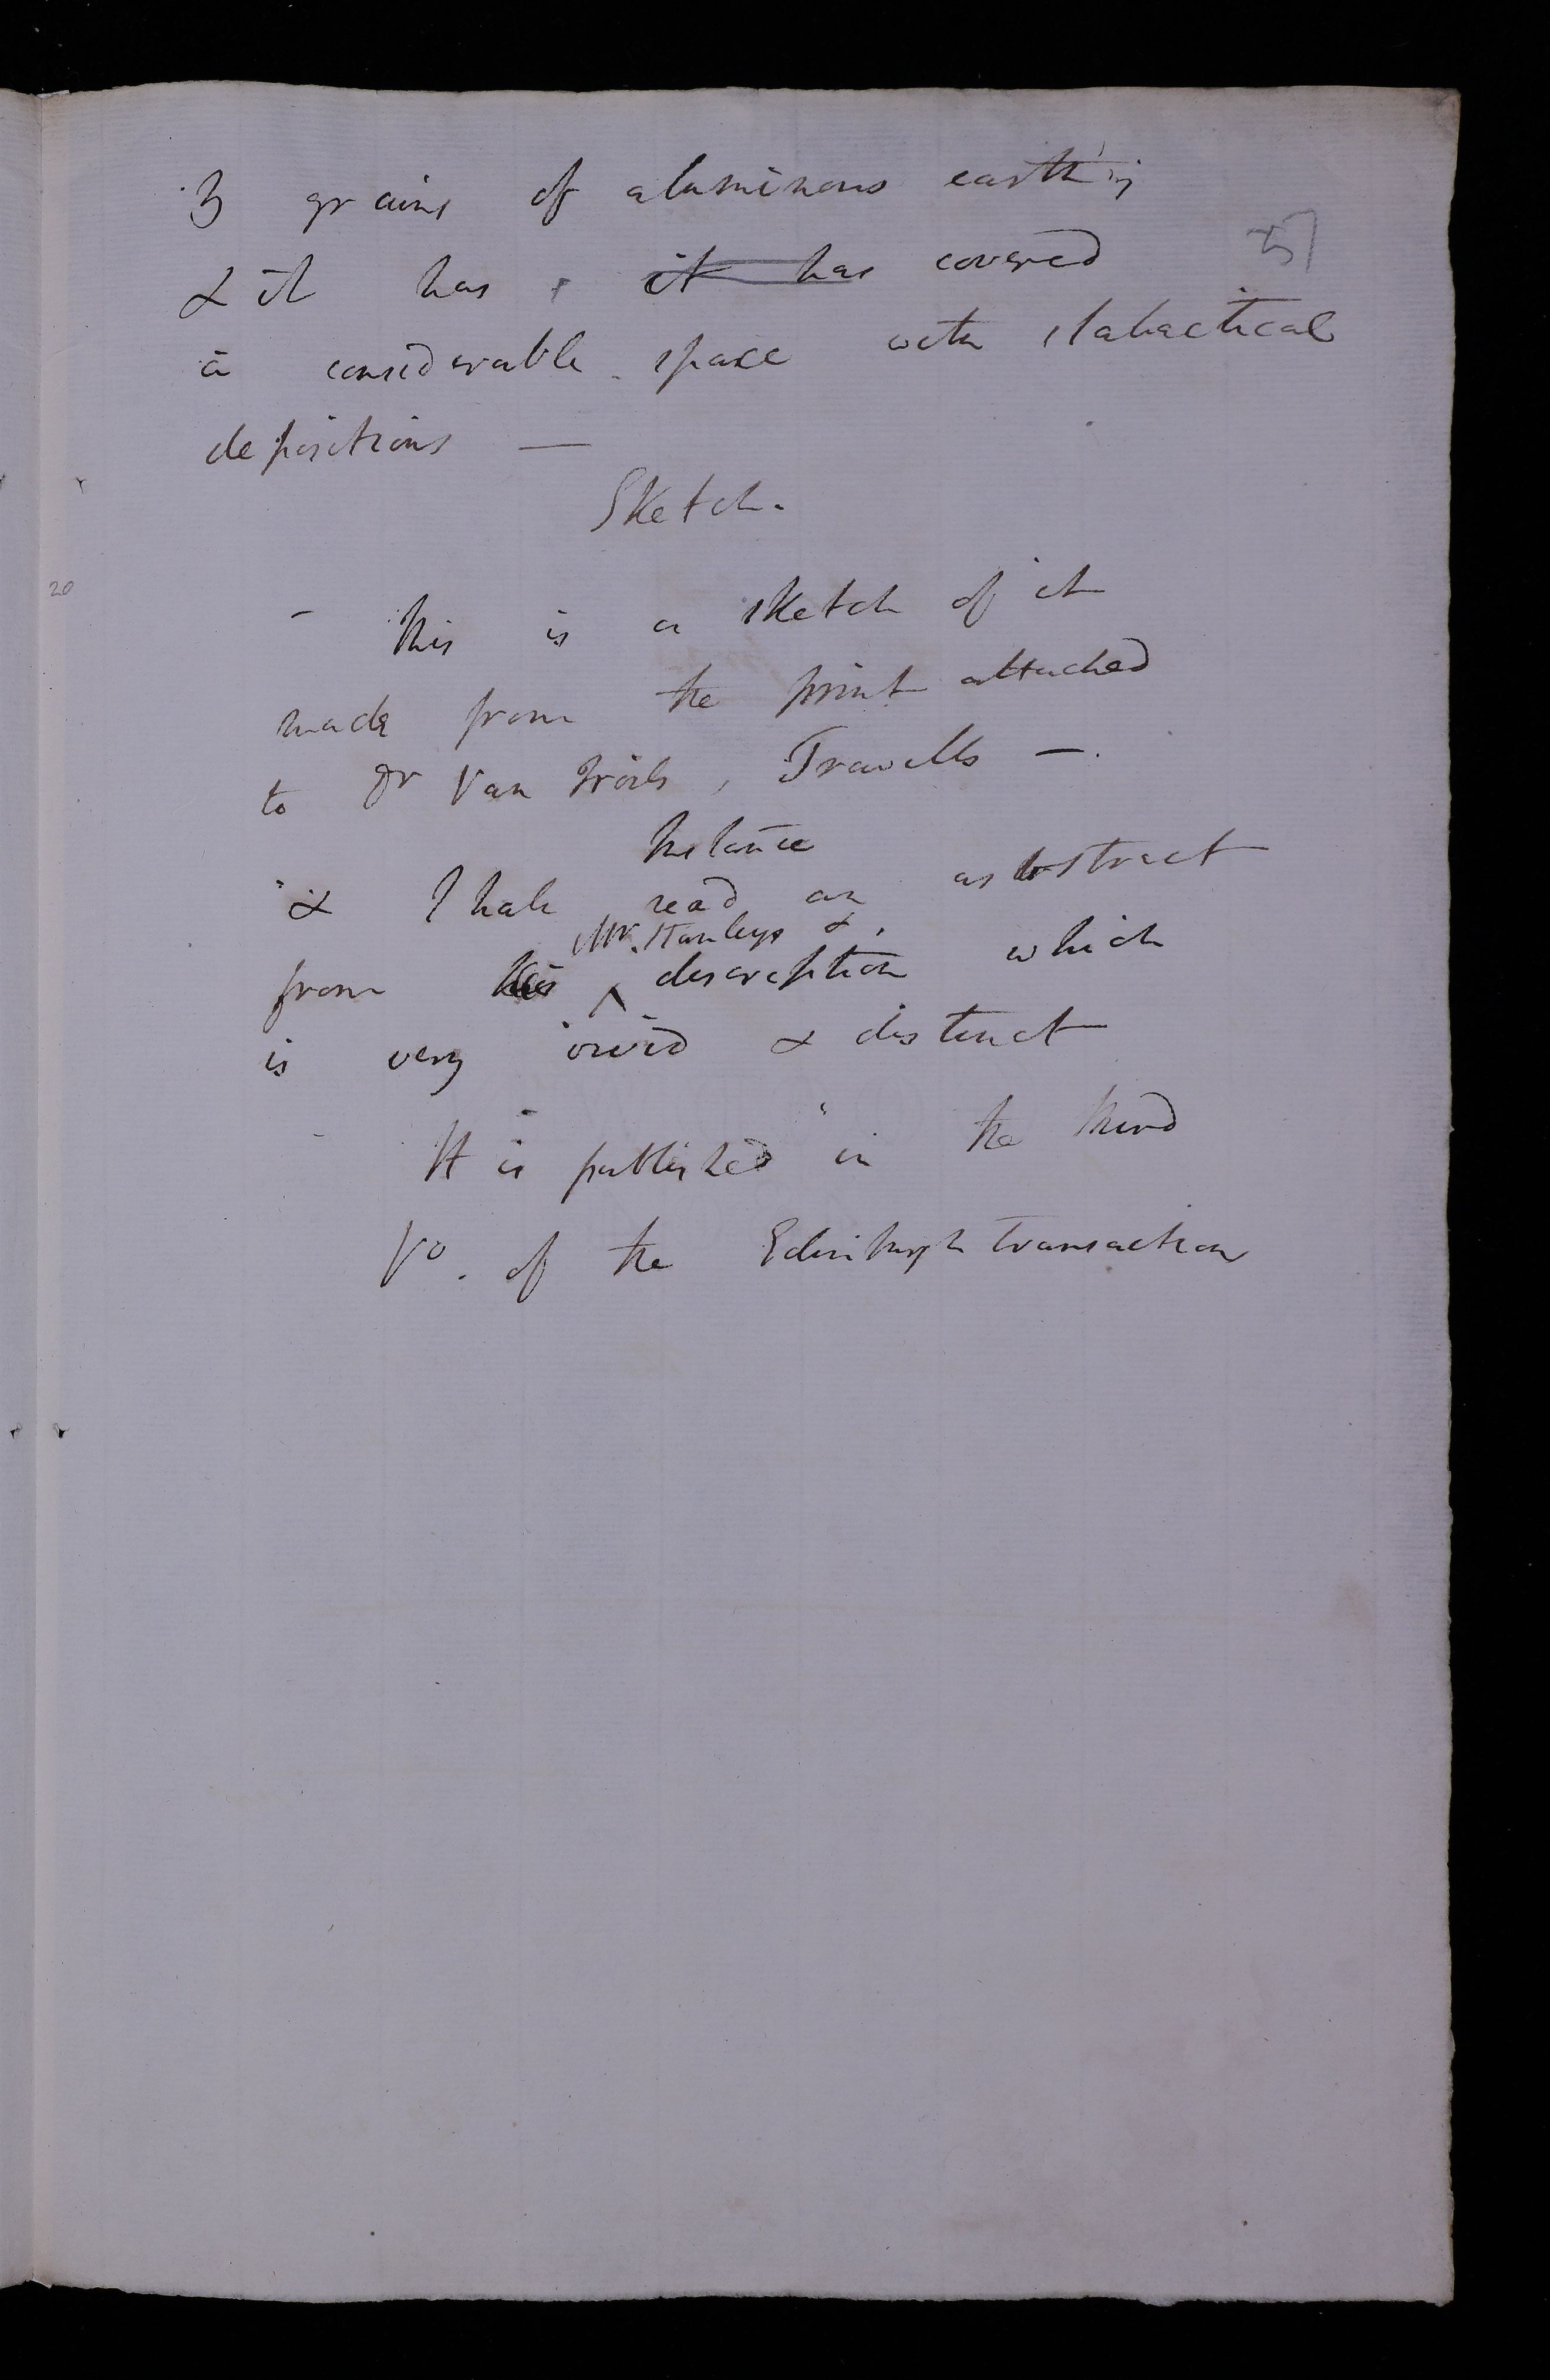 3 grains of aluminous earth;
57
& it has it has covered
a considerable space with stalactical
depositions —
Sketch.
20
— This is a sketch of it
made from the print attached
to Dr Van Troils, Travells —.
& I hale read an abstract
Mr. Stanleys &,
from his ^ description which
is very vivid & distinct
It is published in the third
Vo. of the Edinburgh transaction